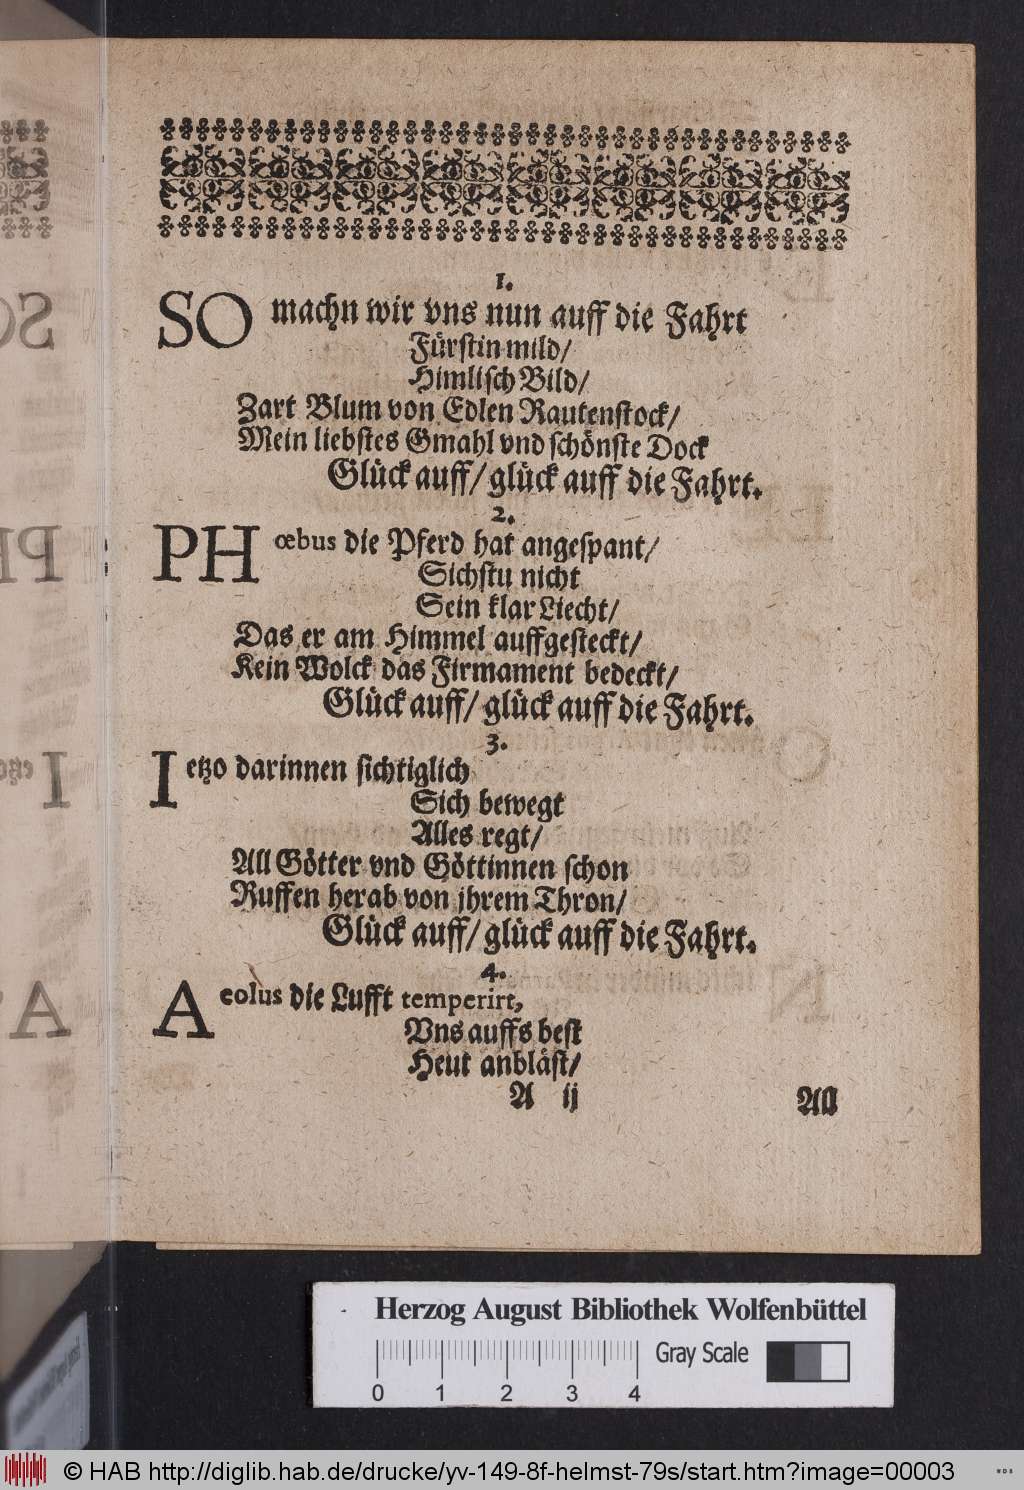 1.
SO machn wir vns nun auff die Fahrt
Fürstin mild/
Himlisch Bild/
Zart Blum von Edlen Rautenstock/
Mein liebstes Gmahl vnd schönste Dock
Glück auff/ glück auff die Fahrt.
2.
PHœbus die Pferd hat angespant/
Sichstu nicht
Sein klar Liecht/
Das er am Himmel auffgesteckt/
Kein Wolck das Firmament bedeckt/
Glück auff/ glück auff die Fahrt.
3.
Ietzo darinnen sichtiglich
Sich bewegt
Alles regt/
All Götter vnd Göttinnen schon
Ruffen herab von jhrem Thron/
Glück auff/ glück auff die Fahrt.
4.
Aeolus die Lufft temperirt,
Vns auffs best
Heut anbläst/
A ij All
Herzog August Bibliothek Wolfenbüttel
Gray Scale
0 1 2 3 4
© HAB http://diglib.hab.de/drucke/yv-149-8f-helmst-79s/start.htm?image=00003